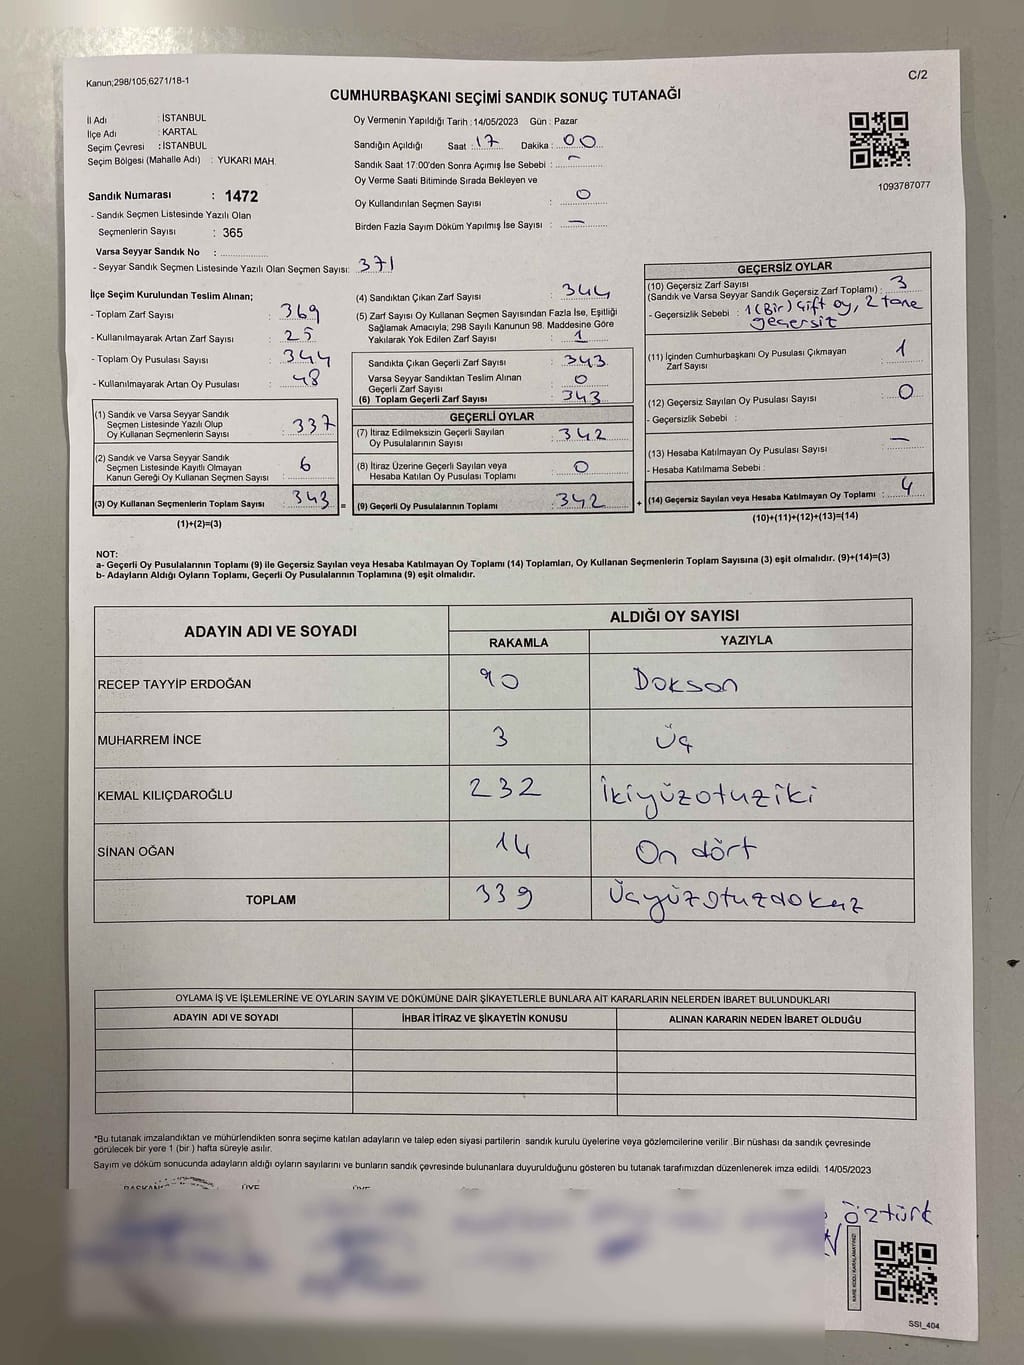 Kanun;298/105,6271/18-1
C/2
CUMHURBAŞKANI SEÇİMİ SANDIK SONUÇ TUTANAĞI
İl Adı : İSTANBUL
İlçe Adı : KARTAL
Seçim Çevresi : İSTANBUL
Seçim Bölgesi (Mahalle Adı) : YUKARI MAH.
Sandık Numarası : 1472
- Sandık Seçmen Listesinde Yazılı Olan
Seçmenlerin Sayısı : 365
Varsa Seyyar Sandık No :
- Seyyar Sandık Seçmen Listesinde Yazılı Olan Seçmen Sayısı: 371
Oy Vermenin Yapıldığı Tarih : 14/05/2023 Gün : Pazar
Sandığın Açıldığı Saat : 17 Dakika : 00
Sandık Saat 17:00'den Sonra Açımış İse Sebebi : -
Oy Verme Saati Bitiminde Sırada Bekleyen ve
Oy Kullandırılan Seçmen Sayısı : 0
Birden Fazla Sayım Döküm Yapılmış İse Sayısı : -
1093787077
İlçe Seçim Kurulundan Teslim Alınan;
- Toplam Zarf Sayısı : 369
- Kullanılmayarak Artan Zarf Sayısı : 25
- Toplam Oy Pusulası Sayısı : 344
- Kullanılmayarak Artan Oy Pusulası : 48
(1) Sandık ve Varsa Seyyar Sandık
Seçmen Listesinde Yazılı Olup
Oy Kullanan Seçmenlerin Sayısı : 337
(2) Sandık ve Varsa Seyyar Sandık
Seçmen Listesinde Kayıtlı Olmayan
Kanun Gereği Oy Kullanan Seçmen Sayısı : 6
(3) Oy Kullanan Seçmenlerin Toplam Sayısı : 343 =
(1)+(2)=(3)
(4) Sandıktan Çıkan Zarf Sayısı : 344
(5) Zarf Sayısı Oy Kullanan Seçmen Sayısından Fazla İse, Eşitliği
Sağlamak Amacıyla; 298 Sayılı Kanunun 98. Maddesine Göre
Yakılarak Yok Edilen Zarf Sayısı : 1
Sandıkta Çıkan Geçerli Zarf Sayısı : 343
Varsa Seyyar Sandıktan Teslim Alınan
Geçerli Zarf Sayısı : 0
(6) Toplam Geçerli Zarf Sayısı : 343
GEÇERLİ OYLAR
(7) İtiraz Edilmeksizin Geçerli Sayılan
Oy Pusulalarının Sayısı : 342
(8) İtiraz Üzerine Geçerli Sayılan veya
Hesaba Katılan Oy Pusulası Toplamı : 0
(9) Geçerli Oy Pusulalarının Toplamı : 342 +
GEÇERSİZ OYLAR
(10) Geçersiz Zarf Sayısı
(Sandık ve Varsa Seyyar Sandık Geçersiz Zarf Toplamı) : 3
- Geçersizlik Sebebi : 1(Bir) çift oy, 2 tane
geçersiz
(11) İçinden Cumhurbaşkanı Oy Pusulası Çıkmayan
Zarf Sayısı : 1
(12) Geçersiz Sayılan Oy Pusulası Sayısı : 0
- Geçersizlik Sebebi :
(13) Hesaba Katılmayan Oy Pusulası Sayısı : -
- Hesaba Katılmama Sebebi :
(14) Geçersiz Sayılan veya Hesaba Katılmayan Oy Toplamı : 4
(10)+(11)+(12)+(13)=(14)
NOT:
a- Geçerli Oy Pusulalarının Toplamı (9) ile Geçersiz Sayılan veya Hesaba Katılmayan Oy Toplamı (14) Toplamları, Oy Kullanan Seçmenlerin Toplam Sayısına (3) eşit olmalıdır. (9)+(14)=(3)
b- Adayların Aldığı Oyların Toplamı, Geçerli Oy Pusulalarının Toplamına (9) eşit olmalıdır.
ADAYIN ADI VE SOYADI
ALDIĞI OY SAYISI
RAKAMLA YAZIYLA
RECEP TAYYİP ERDOĞAN 90 Doksan
MUHARREM İNCE 3 Üç
KEMAL KILIÇDAROĞLU 232 İkiyüzotuziki
SİNAN OĞAN 14 On dört
TOPLAM 339 Üçyüzotuzdokuz
OYLAMA İŞ VE İŞLEMLERİNE VE OYLARIN SAYIM VE DÖKÜMÜNE DAİR ŞİKAYETLERLE BUNLARA AİT KARARLARIN NELERDEN İBARET BULUNDUKLARI
ADAYIN ADI VE SOYADI İHBAR İTİRAZ VE ŞİKAYETİN KONUSU ALINAN KARARIN NEDEN İBARET OLDUĞU
*Bu tutanak imzalandıktan ve mühürlendikten sonra seçime katılan adayların ve talep eden siyasi partilerin sandık kurulu üyelerine veya gözlemcilerine verilir .Bir nüshası da sandık çevresinde
görülecek bir yere 1 (bir ) hafta süreyle asılır.
Sayım ve döküm sonucunda adayların aldığı oyların sayılarını ve bunların sandık çevresinde bulunanlara duyurulduğunu gösteren bu tutanak tarafımızdan düzenlenerek imza edildi. 14/05/2023
BAŞKAN ÜYE ÜYE
öztürk
KARE KODU KARALAMAYINIZ!
SSI_404